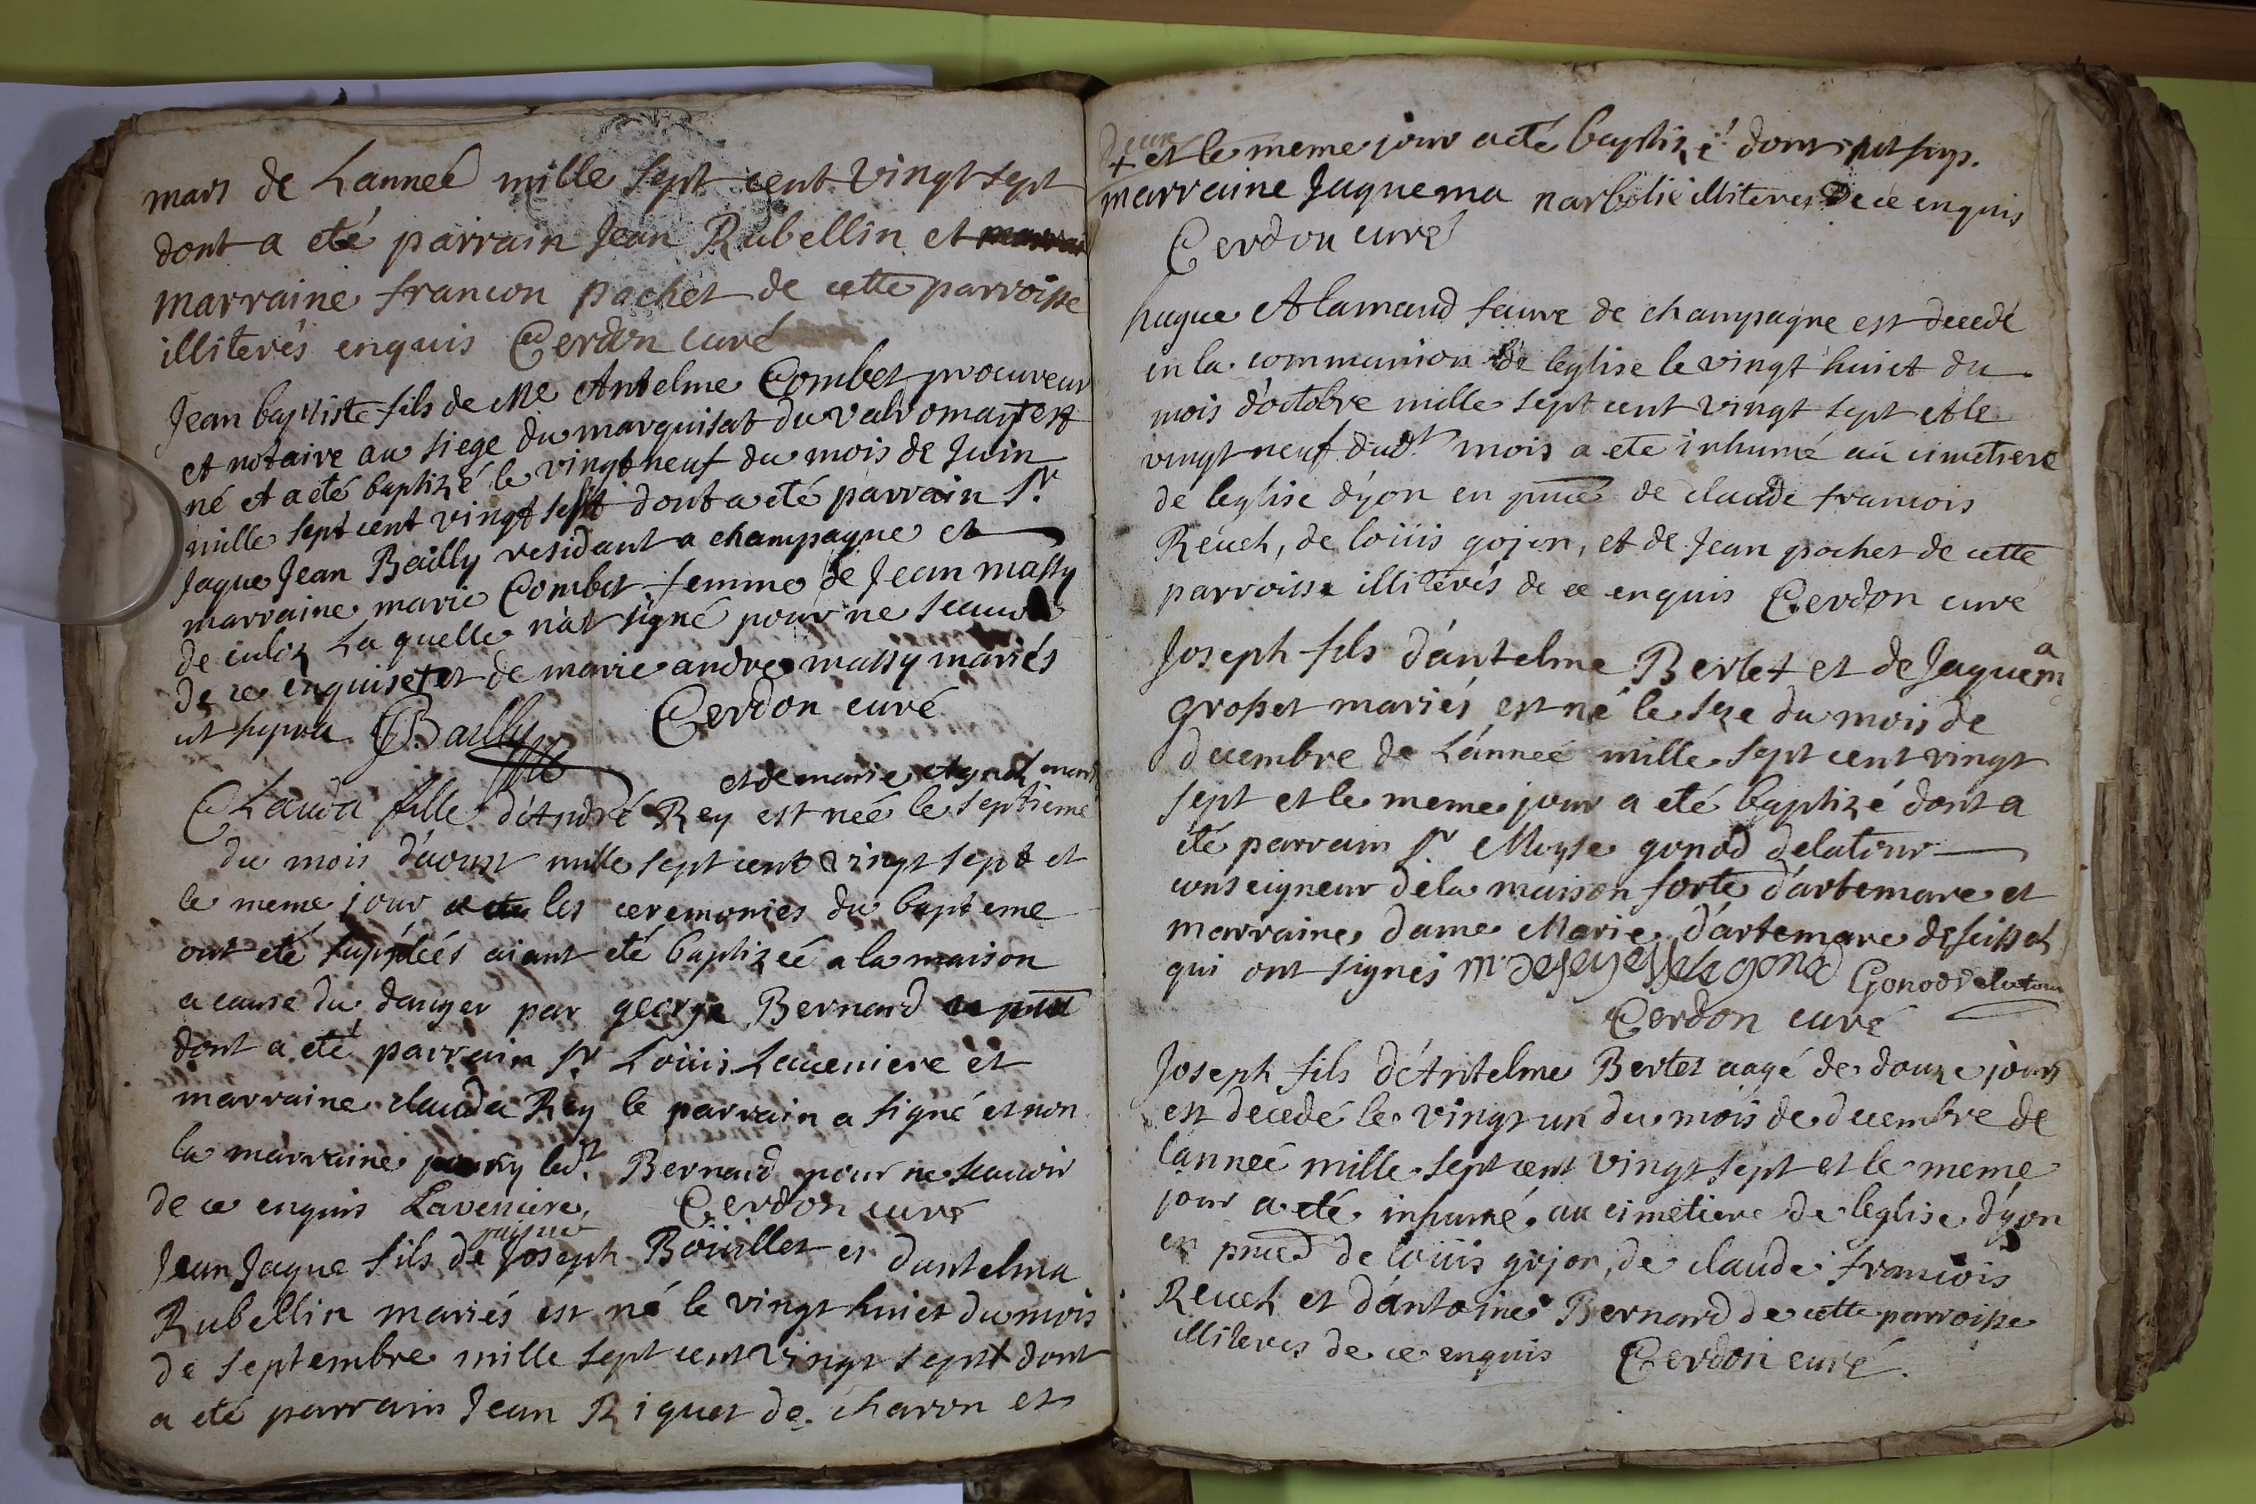 mars de Lanneé mille sept cent vingt sept
dont a eté parrain Jean Rubellin et
marraine françon pachet de cette parroisse
illiterés enquis Cerdon curé
Jean baptiste fils de Me Antelme Combet procureur
et notaire au siege du marquisat du valromay est
né et a eté baptizé le vingt neuf du mois de Juin
mille sept cent vingt sept dont a eté parrain Sr
Jaque Jean Bailly residant a champagne et
marraine marie Combet femme de Jean massy
de culoz La quelle n'at signé pour ne scauoir
de ce enquise et de marie andre massy mariés
ut supra JJBailly Cerdon curé
et de marie
Clauda fille d'André Rey est neé le septieme
du mois d'aoust mille sept cent vingt sept et
le meme jour les ceremonies du bapteme
ont eté suppleés aiant eté baptizeé a la maison
a cause du danger par george Bernard
dont a eté parrain Sr Loüis Laueniere et
marraine clauda Rey le parrain a signé et non
la marraine ny ledt Bernard pour ne scauoir
de ce enquis Laveniere Cerdon curé
Jean Jaque fils de Joseph Boüillet et d'antelma
Rubellin mariés est né le vingt huict du mois
de septembre mille sept cent vingt sept dont
a eté parrain Jean Riquet de charon et
+ et le meme jour a eté baptizé dont ut sup.
marraine Jaquema narbolie illiteres de ce enquis
Cerdon curé
huque Alamand feure de champagne est decedé
en la communion de leglise le vingt huict du
mois d'octobre mille sept cent vingt sept et le
vingt neuf dudt mois a ete inhumé au cimetiere
de leglise d'yon en pnce de claude francois
Reueh, de loüis gojon, et de Jean pochet de cette
parroisse illiterés de ce enquis Cerdon curé
Joseph fils d'antelme Bertet et de Jaquema
grosset mariés est né le seze du mois de
decembre de L'anneé mille sept cent vingt
sept et le meme jour a eté baptizé dont a
eté parrain Sr Moyse gonod delatour
conseigneur de la maison forte d'artemare et
marraine dame Marie d'artemare de seissel
qui ont signés Gonod delatour
Cerdon curé
Joseph fils d'Antelme Bertet aagé de douze jours
est decedé le vingt un du mois de decembre de
l'anneé mille sept cent vingt sept et le meme
jour a eté inhumé au cimetiere de leglise d'yon
en pnce de loüis gojon, de claude francois
Reueh et d'antoine Bernard de cette parroisse
illiteres de ce enquis Cerdon curé.